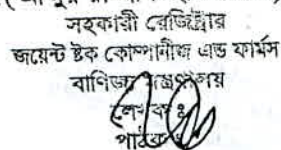 সহকারী রেজিষ্ট্রার
জয়েন্ট ষ্টক কোম্পানীজ এন্ড ফার্মস
বাণিজ্য মন্ত্রণালয়
লেখক ঃ
পাঠক